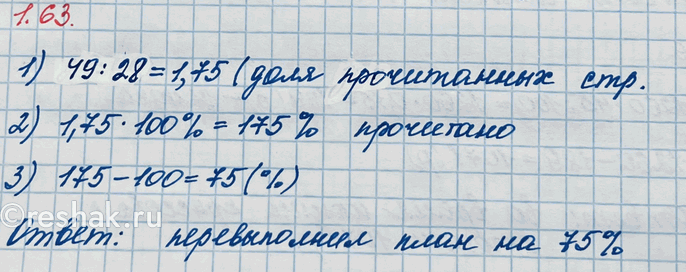 1.63.
1) 49:28=1,75 (доля прочитанных стр.
2) 1,75·100%=175% прочитано
3) 175-100=75(%)
reshak.ru
Ответ: перевыполнил план на 75%